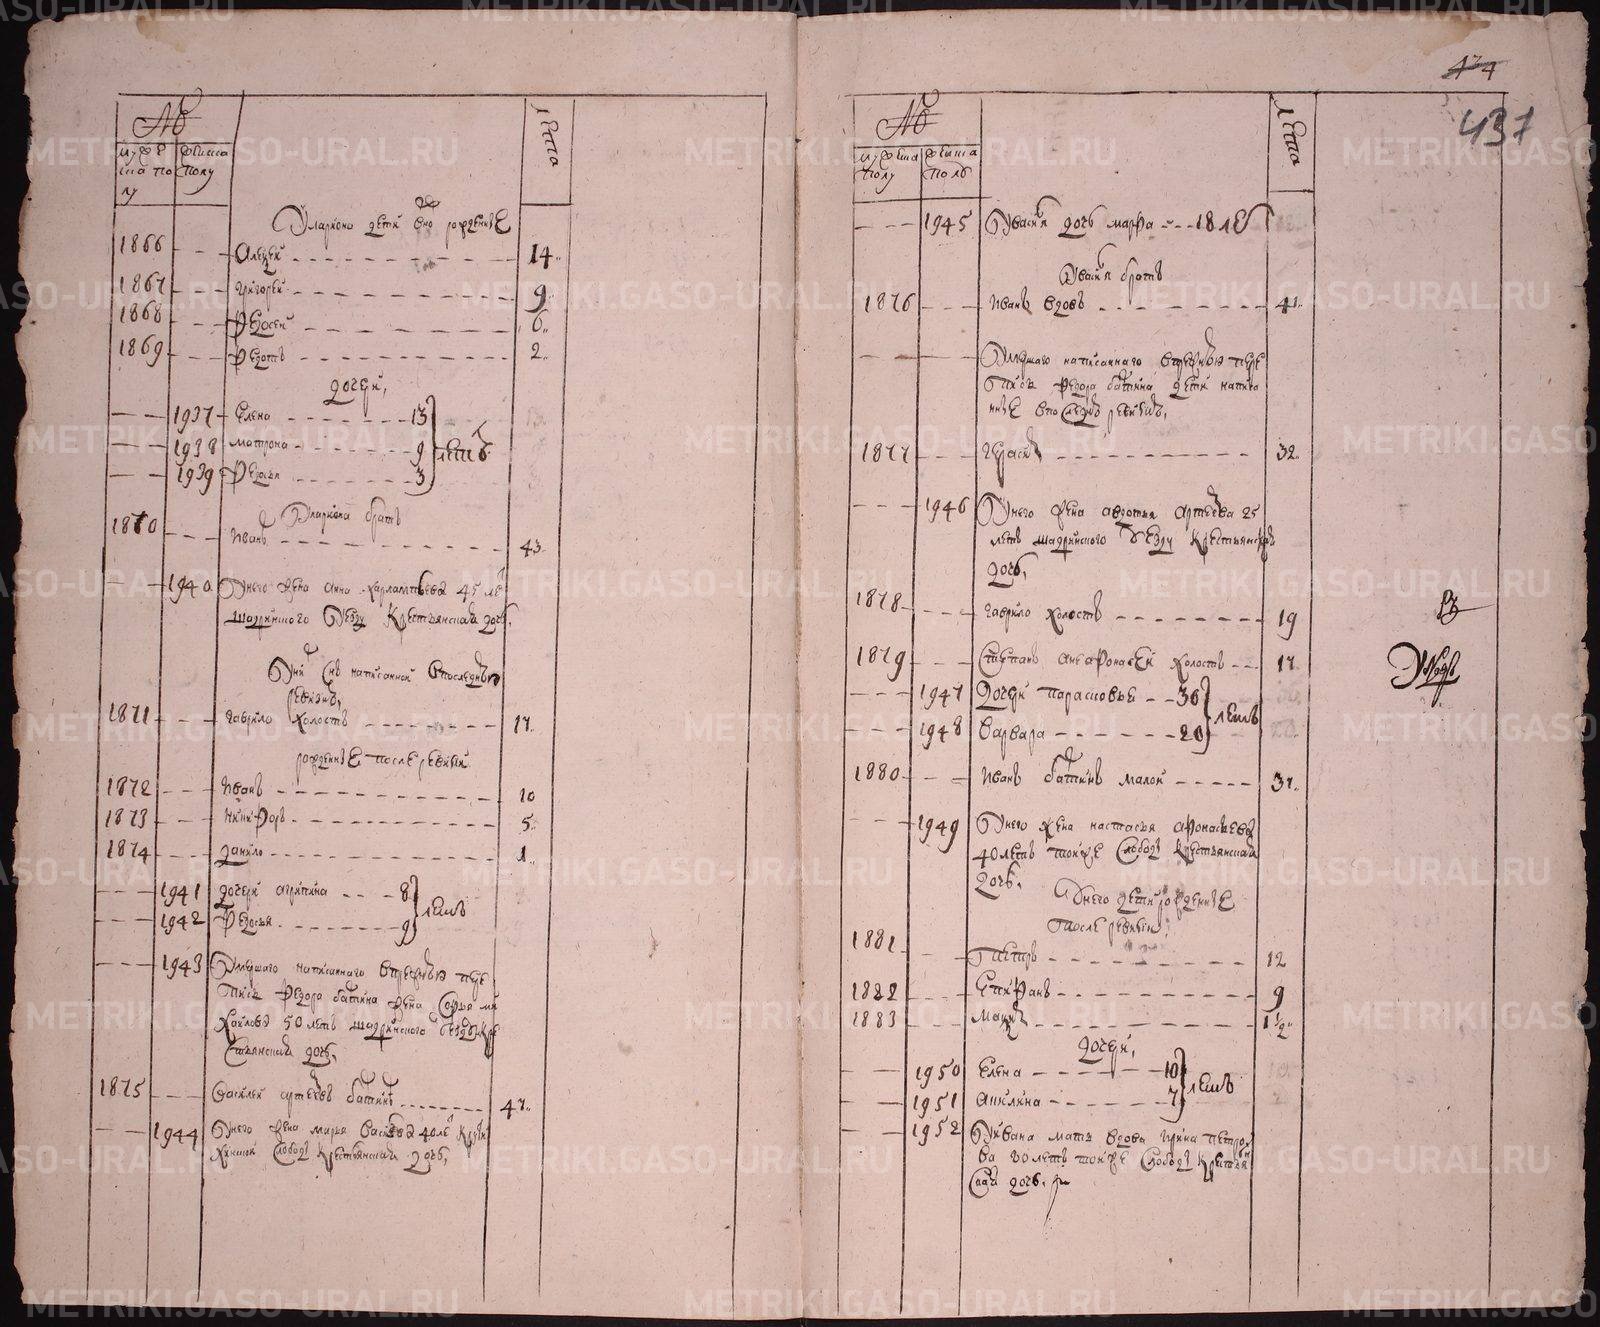 №
мужеска полу
женска полу
лета
Илариона дети ево рожденные
1866 Алексей 14
1867 Григорей 9
1868 Федосей 6
1869 Федотъ 2
дочери,
1937 Елена 13
1938 матрона 9 летъ
1939 Федосья 3
Илариона братъ
1870 Иванъ 43
1940 Унего жена анна харлампьева 45 ле
шадринского уезду крестьянская дочь,
Уни снъ написанной впоследнею
ревизию,
1871 гаврило холостъ 17
рожденные после ревизии
1872 Иванъ 10
1873 Никифоръ 5
1874 данило 1
1941 дочери агрипина 8
1942 Федосья 9 летъ
1943 Умершаго написанного впрежнею пере
пись Федора батина жена софья ми
хайлова 50 летъ шадринского уезду кре
стьянская дочь,
1875 Василей артеевъ батинъ 47
1944 Унего жена марья васильева 40 ле
слободы крестьянская дочь,
474
437
№
мужеска полу
женска полъ
лета
1945 дочь марфа 18 ле
братъ
1876 Иванъ вдовъ 41
Умершаго написаннаго впрежнюю пере
пись Федора батина дети написа
нные впоследнею ревизию,
1877 герасимъ 32
1946 Унего жена авдотья артеева 25
летъ шадринского уезду крестьянская
дочь,
1878 гаврило холостъ 19
1879 Степанъ холостъ 17
1947 дочери парасковья 30
1948 варвара 20 летъ
1880 Иванъ батинъ малой 37
1949 Унего жена настасья афонасьева
40 летъ тойже слободы крестьянская
дочь,
Унего дети рожденные
после ревизии,
1881 Петръ 12
1882 Епифанъ 9
1883 1 1/2
дочери,
1950 Елена 10
1951 акилина 7 летъ
1952 Уивана мать вдова ирина петро
ва 80 летъ тойже слободы крестья
ская дочь.
METRIKI.GASO-URAL.RU